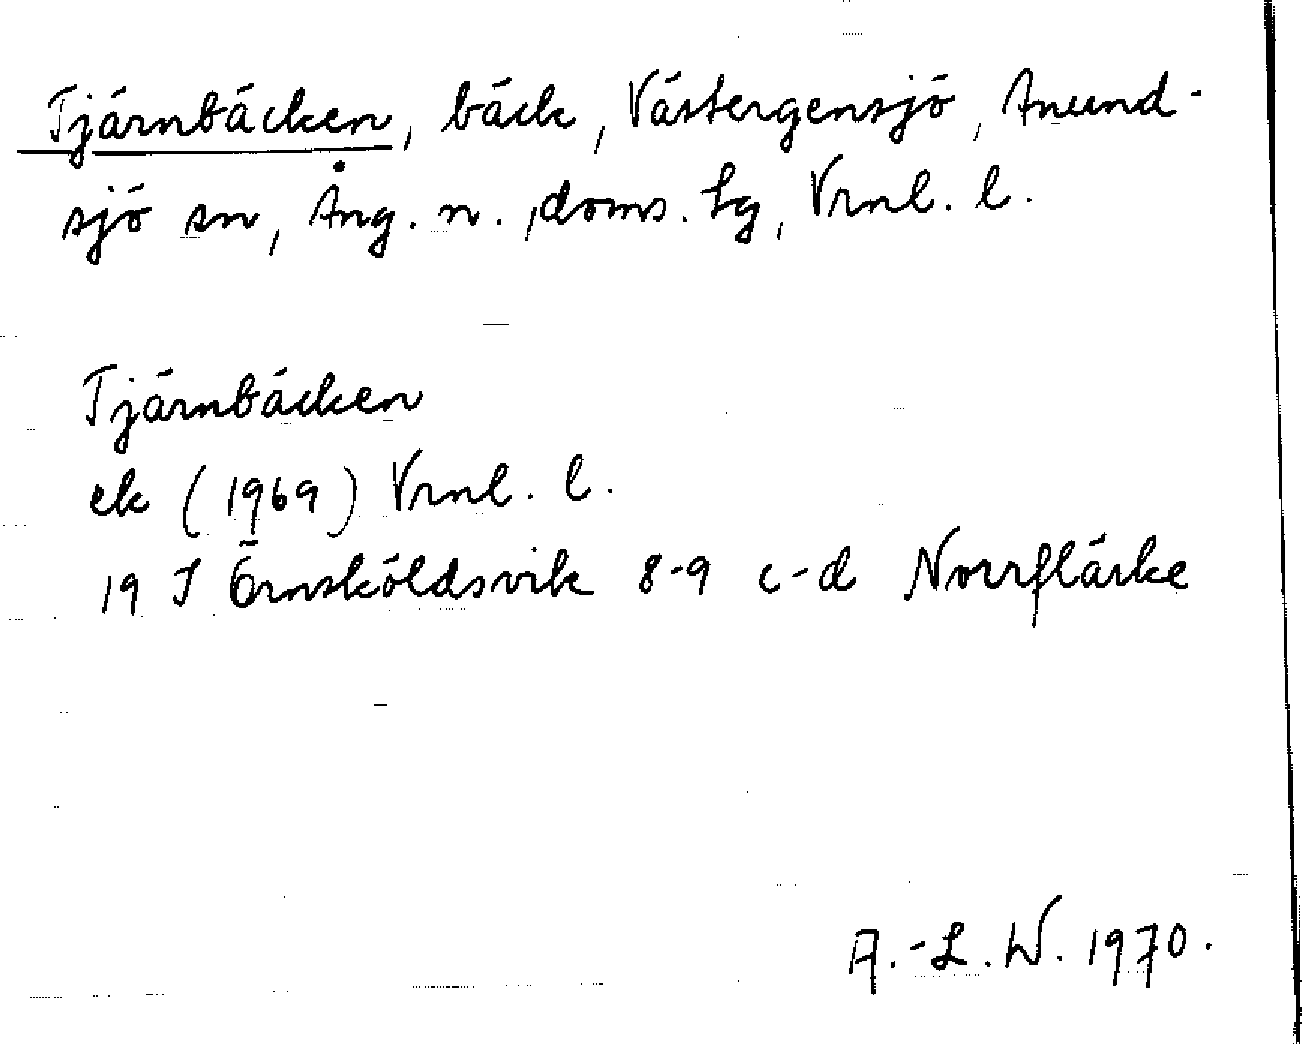 Tjärnbäcken, bäck, Västergensjö, Anund-
sjö sn, Ång. n., doms. lg, Vrnl. l.
Tjärnbäcken
ek (1969) Vrnl. l.
19 J Örnsköldsvik 8-9 c-d Norrflärke
A.-L.W. 1970.